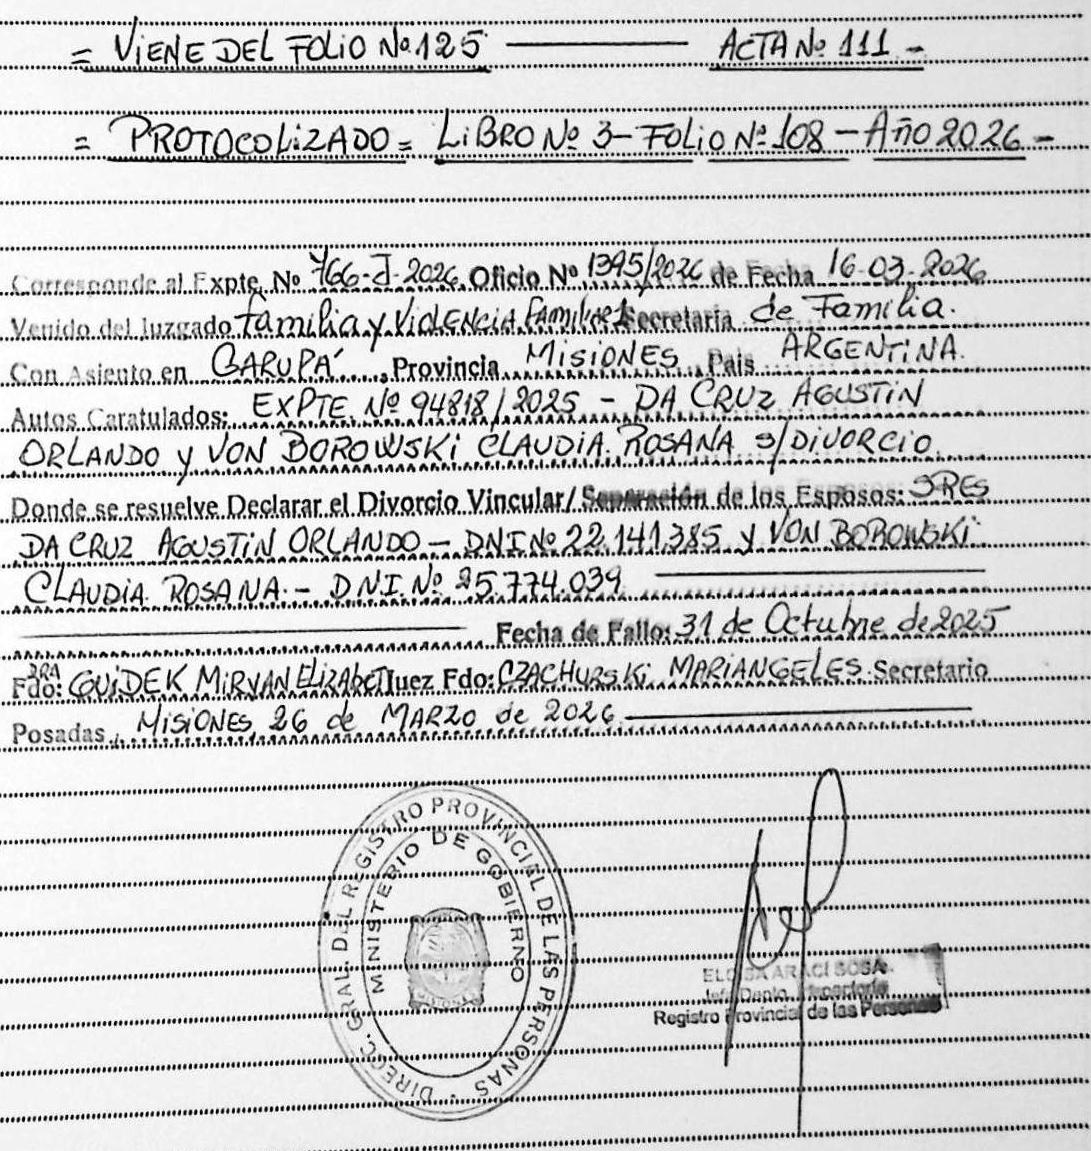 = VIENE DEL FOLIO Nº 125 ACTA Nº 111 -
= PROTOCOLIZADO = LIBRO Nº 3 - FOLIO Nº 108 - AÑO 2026 -
Corresponde al Expte. Nº 766-J-2026 Oficio Nº 1395/2026 de Fecha 16-03-2026
Venido del Juzgado Familia y VIOLENCIA FAMILIAR 1 Secretaría de Familia.
Con Asiento en GARUPÁ, Provincia MISIONES, País ARGENTINA.
Autos Caratulados: EXPTE. Nº 94818/2025 - DA CRUZ AGUSTIN
ORLANDO y VON BOROWSKI CLAUDIA ROSANA s/DIVORCIO
Donde se resuelve Declarar el Divorcio Vincular/ Separación de los Esposos: SRES
DA CRUZ AGUSTIN ORLANDO - DNI Nº 22.141.385 y VON BOROWSKI
CLAUDIA ROSANA. - D.N.I. Nº 25.774.039
Fecha de Fallo: 31 de Octubre de 2025
Fdo: DRA GUIDEK MIRYAN ELIZABET Juez Fdo: CZACHURSKI MARIANGELES Secretario
Posadas, MISIONES, 26 de MARZO de 2026
DIRECC. GRAL. DEL REGISTRO PROVINCIAL DE LAS PERSONAS
MINISTERIO DE GOBIERNO
ELOISA ARACÍ SOSA
Jefa Dpto.
Registro Provincial de las Personas